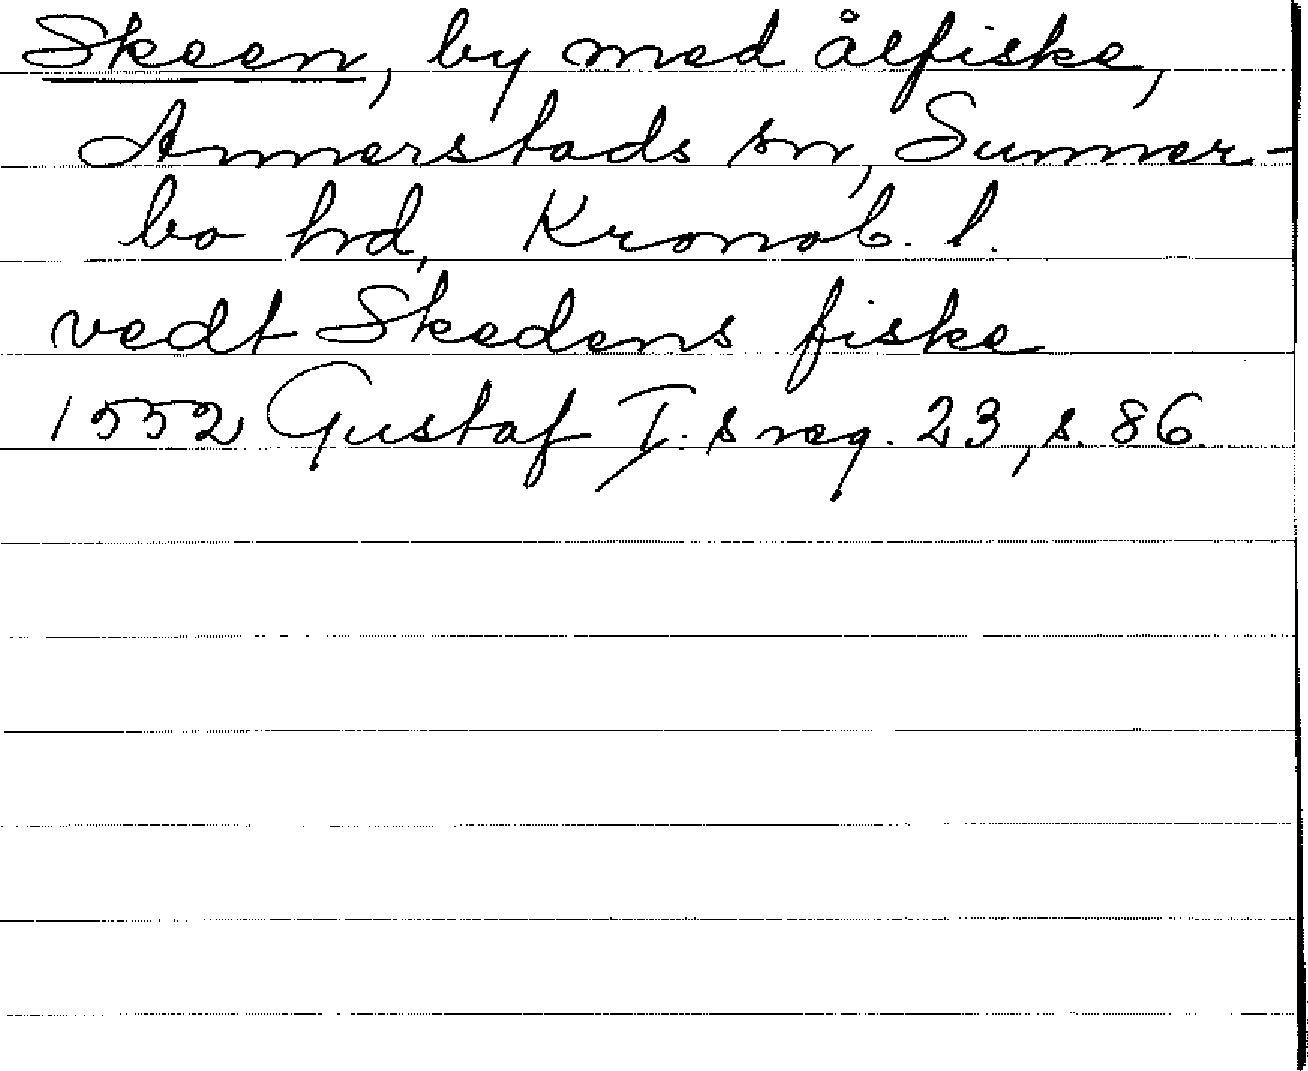 Skeen, by med ålfiske,
Annerstads sn, Sunner-
bo hrd, Kronob. l.
vedt Skedens fiske
1552 Gustaf I. s reg. 23, s. 86.